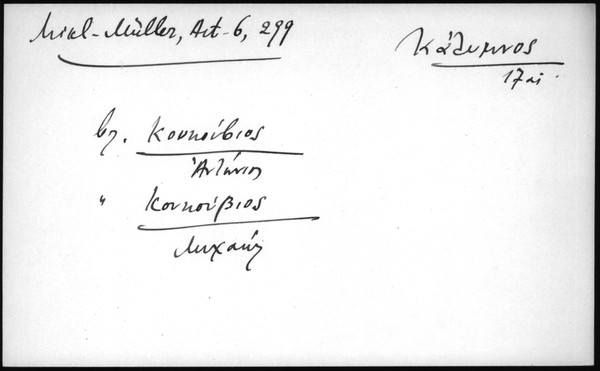 Mikl-Müller, Act-6, 299
Κάλυμνος
17 αἰ.
βλ. Κουκούβιος
Ἀντώνιος
" Κουκούβιος
Μιχαήλ